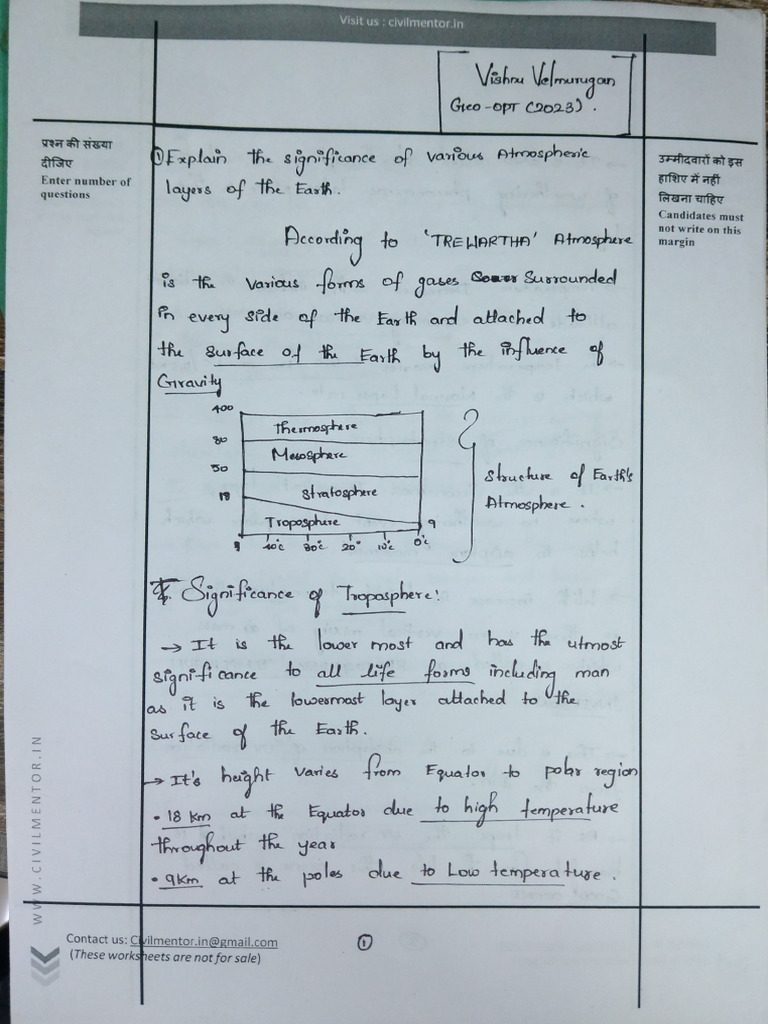 Visit us : civilmentor.in
Vishnu Velmurugan
Geo-OPT (2023).
प्रश्न की संख्या
दीजिए
Enter number of
questions
उम्मीदवारों को इस
हाशिए में नहीं
लिखना चाहिए
Candidates must
not write on this
margin
① Explain the significance of various Atmospheric
layers of the Earth.
According to 'TREWARTHA' Atmosphere
is the various forms of gases surrounded
in every side of the Earth and attached to
the surface of the Earth by the influence of
Gravity
400
Thermosphere
80
Mesosphere
50
Stratosphere
18
Troposphere
9
40°c 30°c 20° 10°c 0°c
Structure of Earth's
Atmosphere.
Significance of Troposphere:
→ It is the lower most and has the utmost
significance to all life forms including man
as it is the lowermost layer attached to the
surface of the Earth.
→ It's height varies from Equator to polar region
• 18 km at the Equator due to high temperature
throughout the year
• 9km at the poles due to Low temperature.
WWW.CIVILMENTOR.IN
Contact us: Civilmentor.in@gmail.com
(These worksheets are not for sale)
①